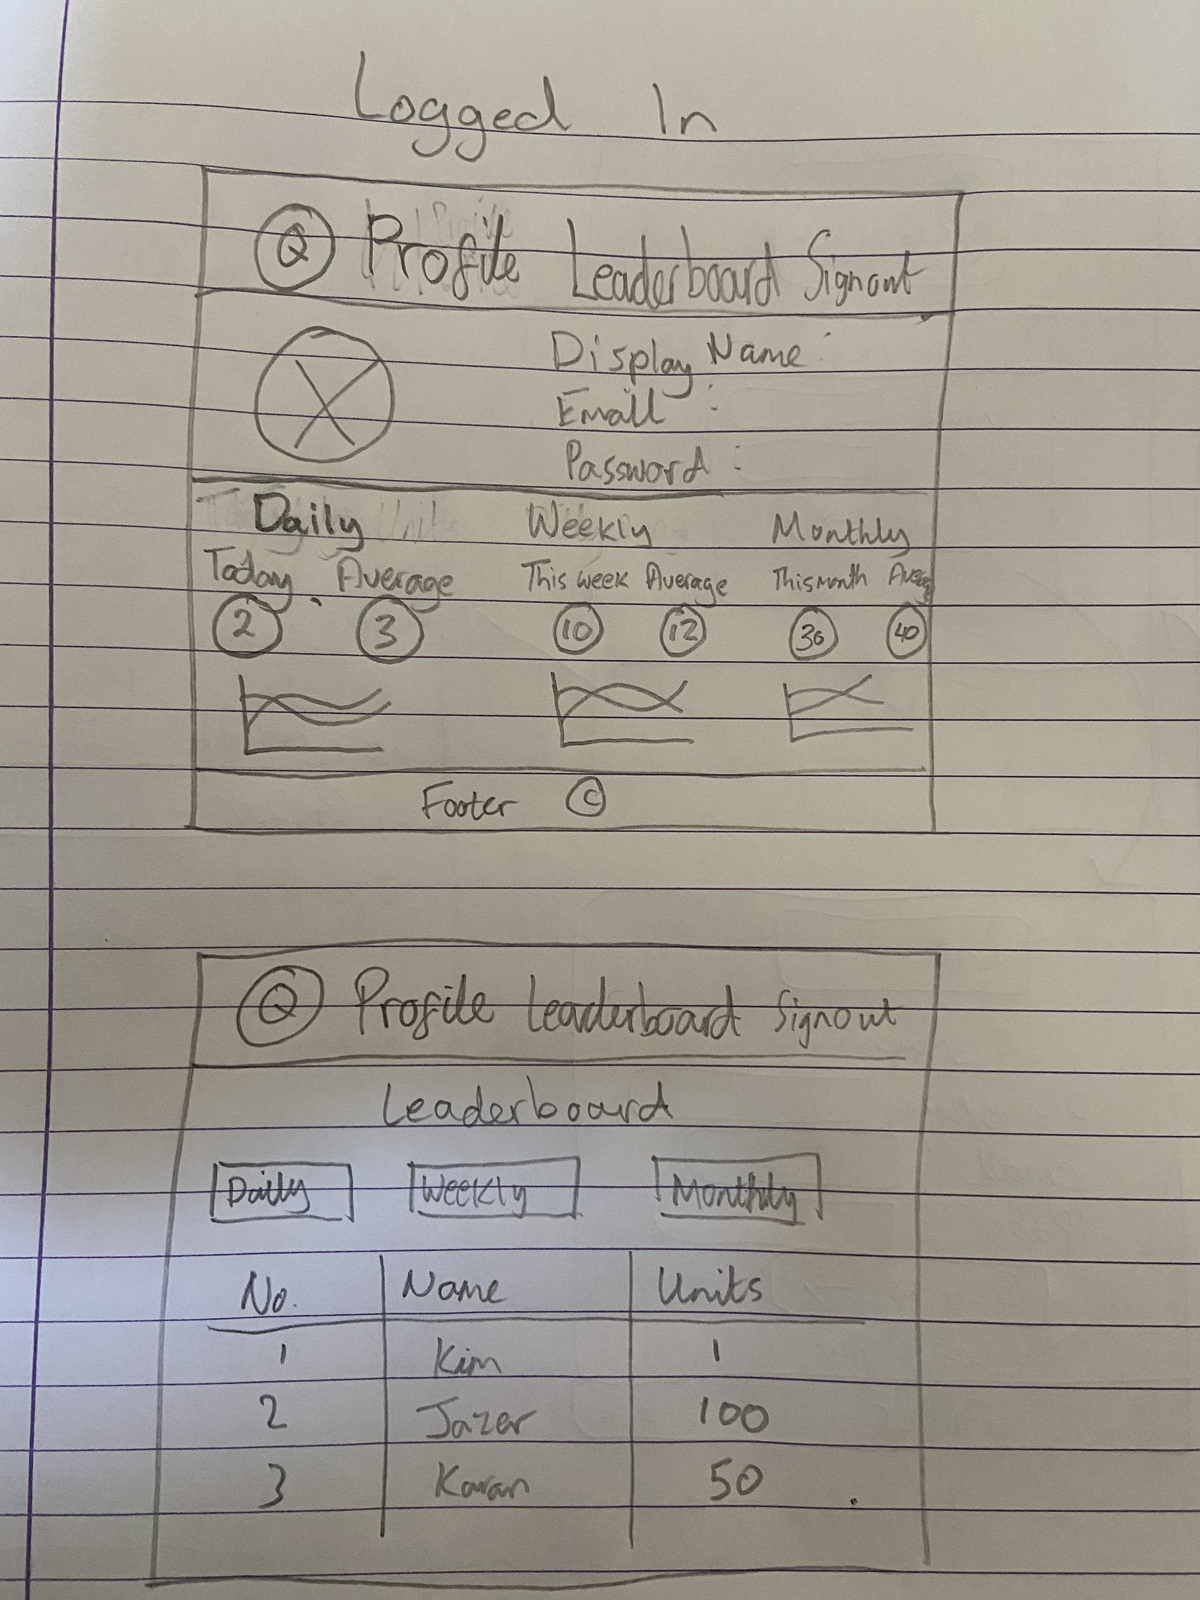 Logged In
Q Profile Leaderboard Signout
Display Name :
Email :
Password :
Daily Weekly Monthly
Today Average This week Average This month
2 3 10 12 36 40
Footer ©
Q Profile Leaderboard Signout
Leaderboard
Daily Weekly Monthly
No. Name Units
1 Kim 1
2 Jazer 100
3 Karan 50